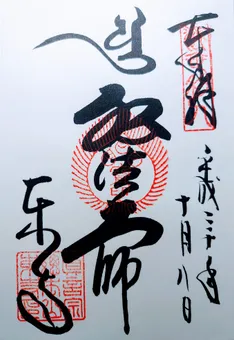 奉拝
平成三十年
十月八日
弘法大師
東寺